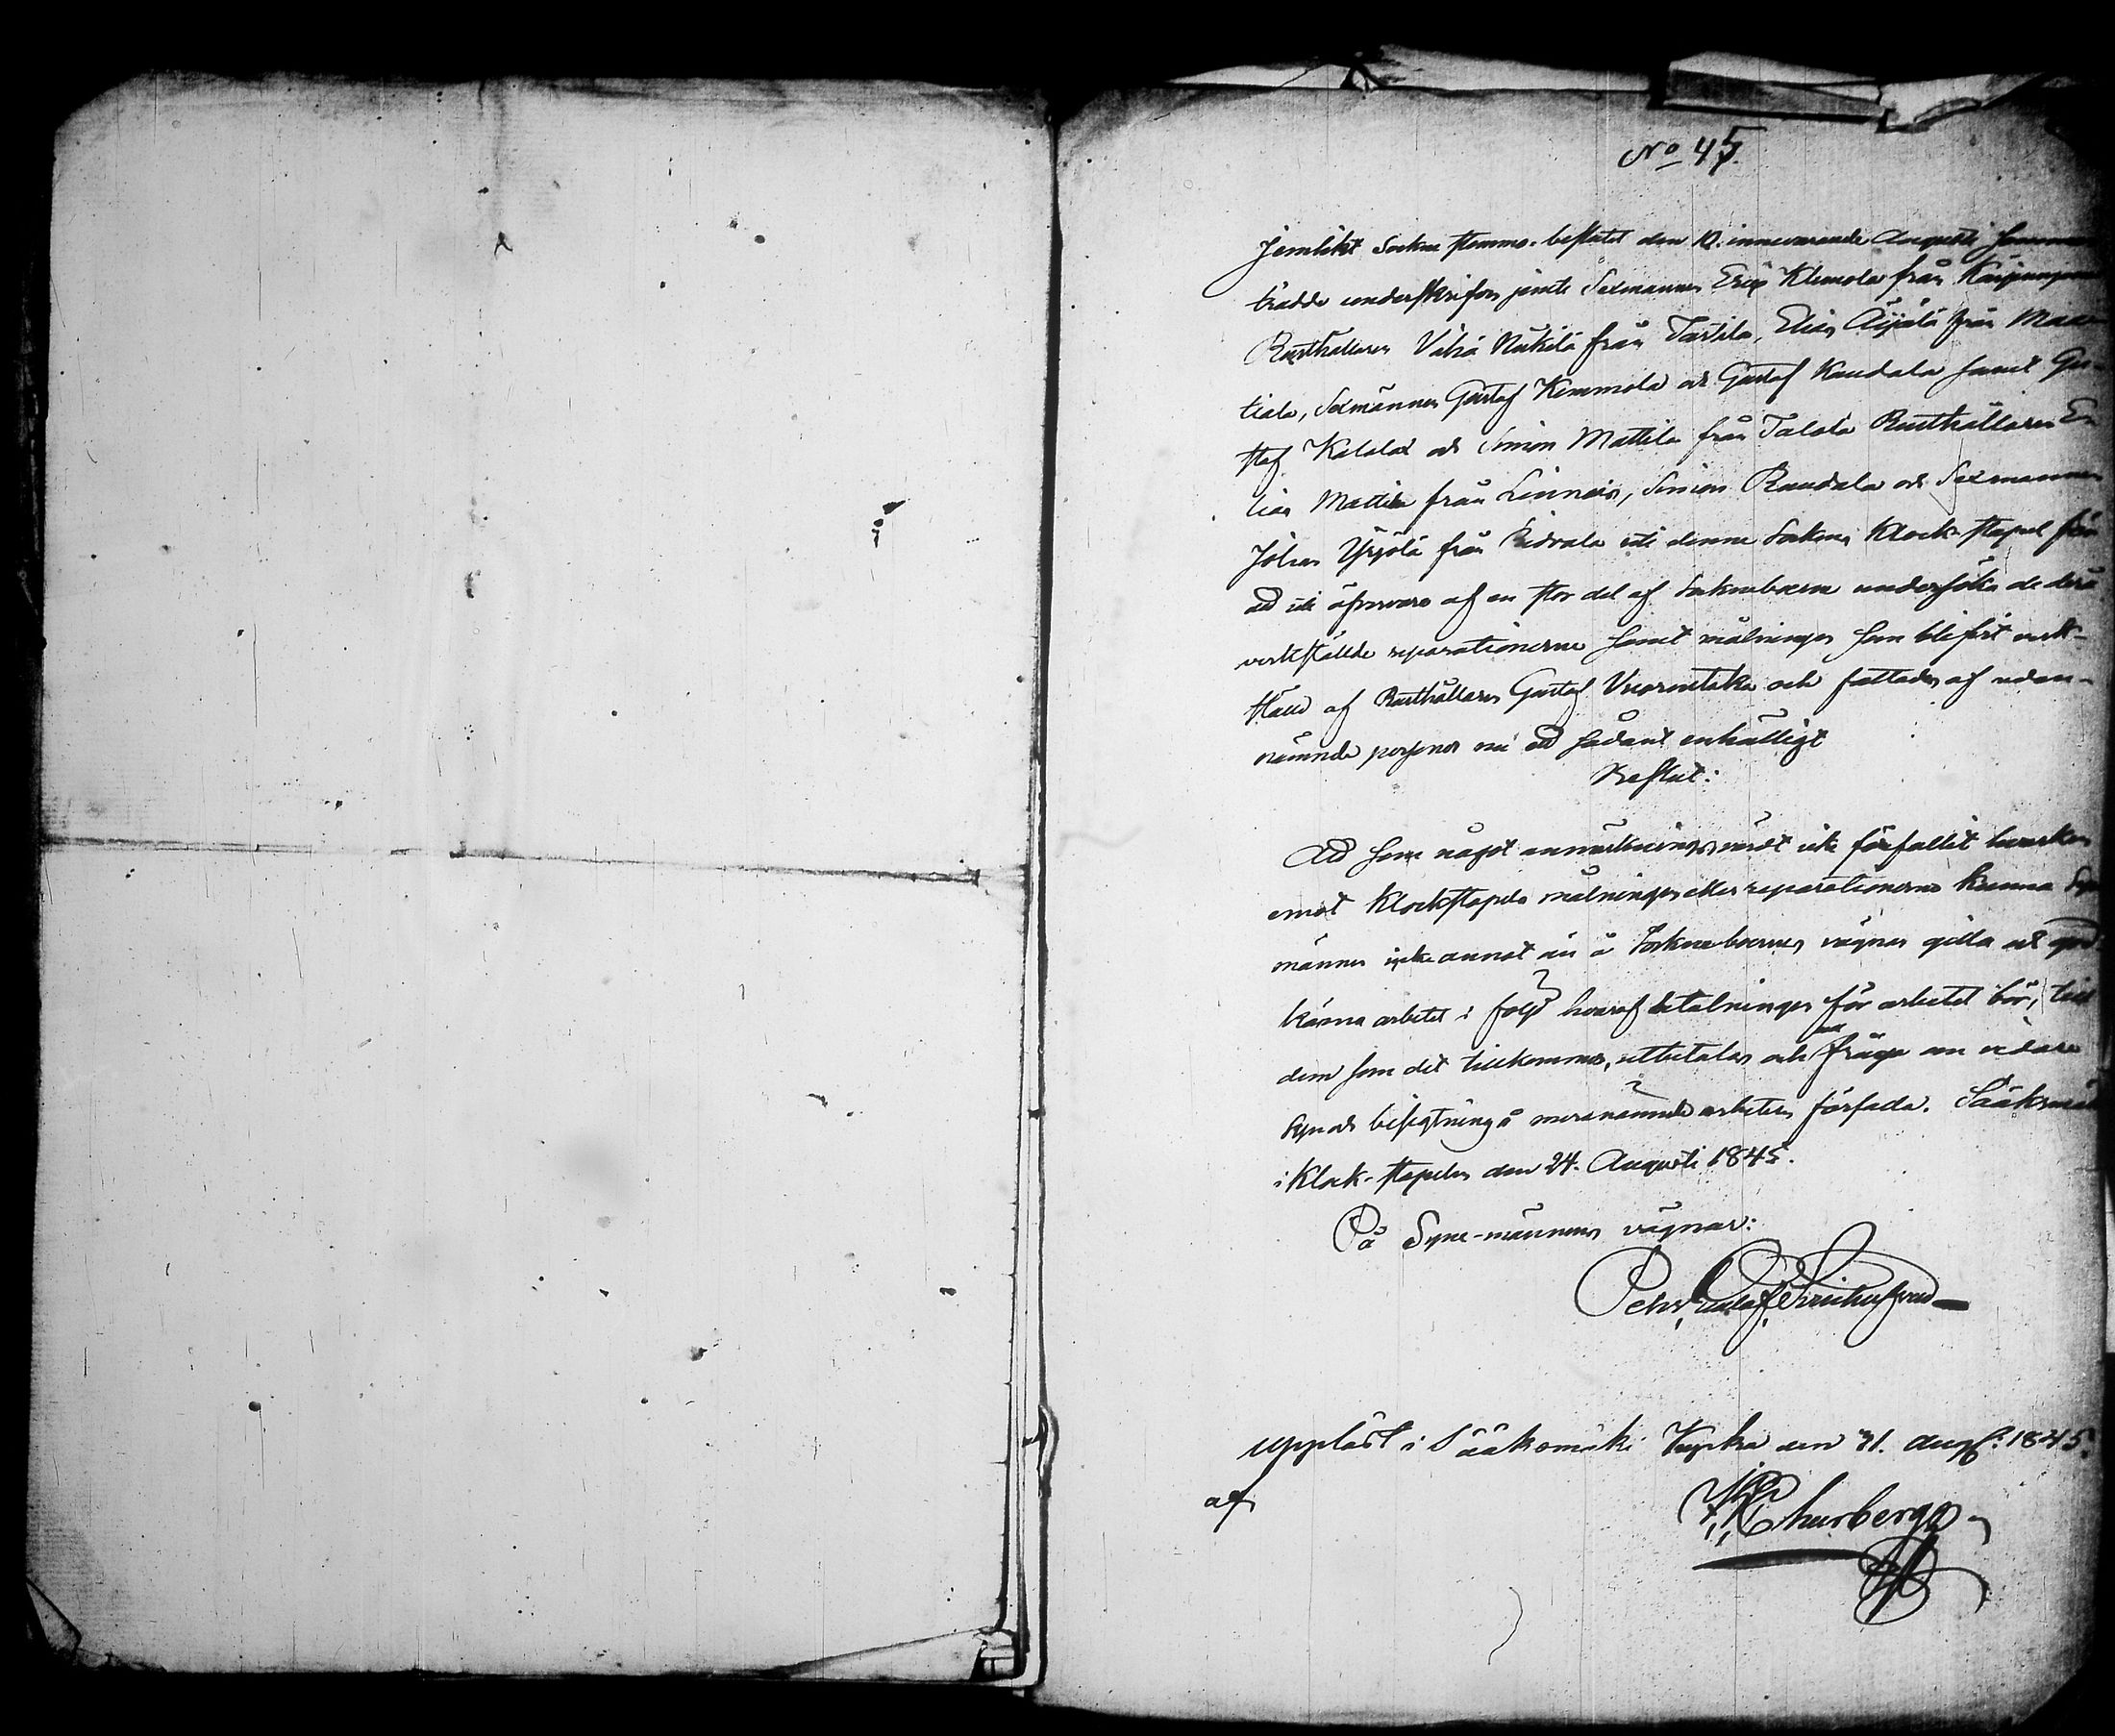 No 45.
Jemlikt Sockne stemmo-beslutet den 10. innevarande Augusti samman
trädde underskrifven jemte Sexmannen Eric Klemola från
Rusthållaren Vähä Nukilä från Tarttila, Elias Äijälä från Mat
tiala, Sexmännen Gustaf Kemmola och Gustaf Kaudala samt Gu-
staf Kalala och Simon Mattila från Talola Rusthållaren E
lias Mattila från Linnais, Simon Raudala och Sexmannen
Johan Yrjölä från Ridvala uti denne Sockens Klock-stapel för
att uti öfvervaro af en stor del af Socknеboerne undersöka de derå
verkställde reparationerne samt målningen som blifvit verk-
ställd af Rusthållaren Gustaf Vuorentaka och fattades af udan-
nämnde personer nu ett sådant enhälligt
Beslut:
Att som något anmärkningsvärdt icke förefallit hvarken
emot Klockstapelns målningen eller reparationerne kunna Syne
männen icke annat än å Socknеboernes vägnar gilla och god-
känna arbetet i följd hvaraf betalningen för arbetet bör, till
dem som det tillkommer, utbetalas och all fråga om vidare
syn och besigtning å meranämnde arbeten förfalla. Sääksmäki
i Klock-stapelen den 24. Augusti 1845.
På Syne-männens vägnar:
Pehr Gustaf Svinhufvud
Uppläst i Sääksmäki Kyrka den 31. Aug: 1845.
af
Churberg